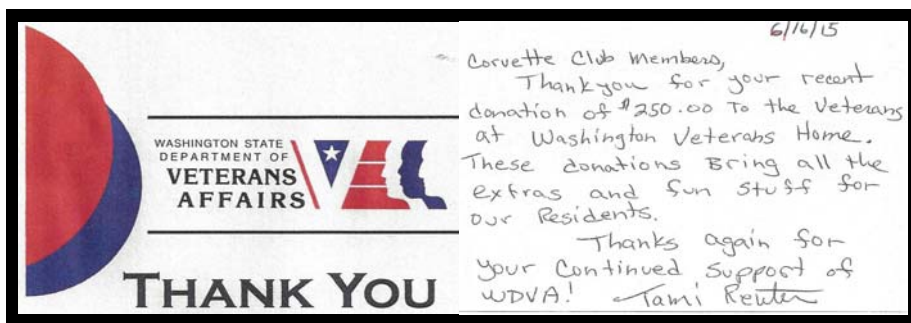 WASHINGTON STATE
DEPARTMENT OF
VETERANS
AFFAIRS
THANK YOU
6/16/15
Corvette Club Members,
Thankyou for your recent
donation of $250.00 To the Veterans
at Washington Veterans Home.
These donations Bring all the
extras and fun stuff for
our Residents.
Thanks again for
your Continued Support of
WDVA! Tami Reuter